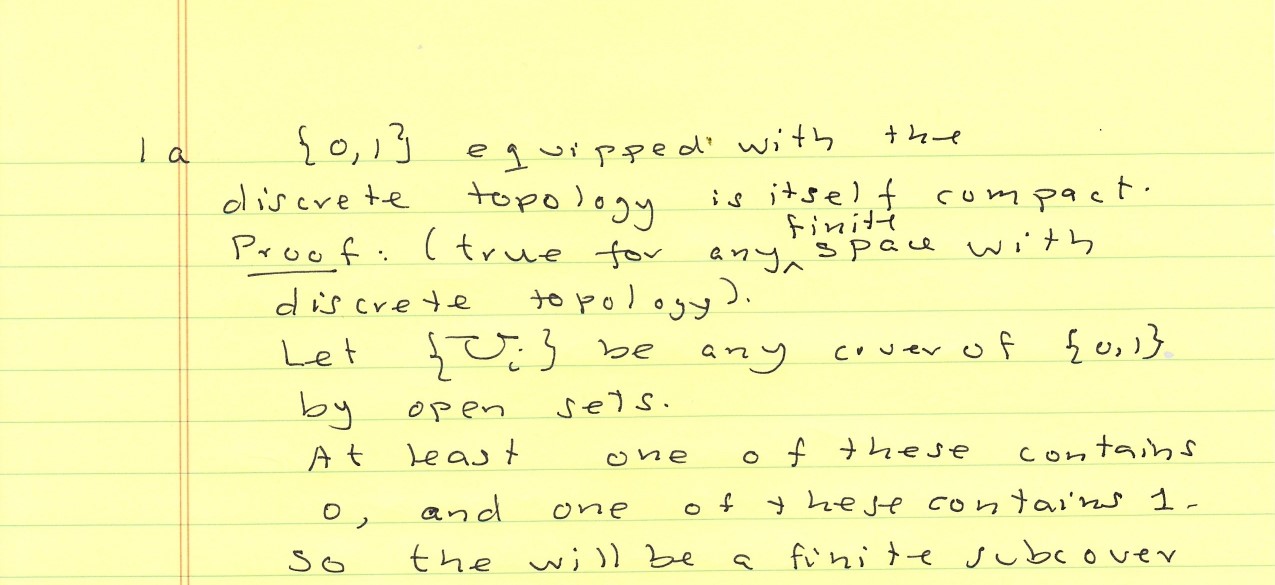 1a {0,1} equipped with the
discrete topology is itself compact.
finite
Proof: (true for any ^ space with
discrete topology).
Let {Ui} be any cover of {0,1}
by open sets.
At least one of these contains
0, and one of these contains 1.
So the will be a finite subcover